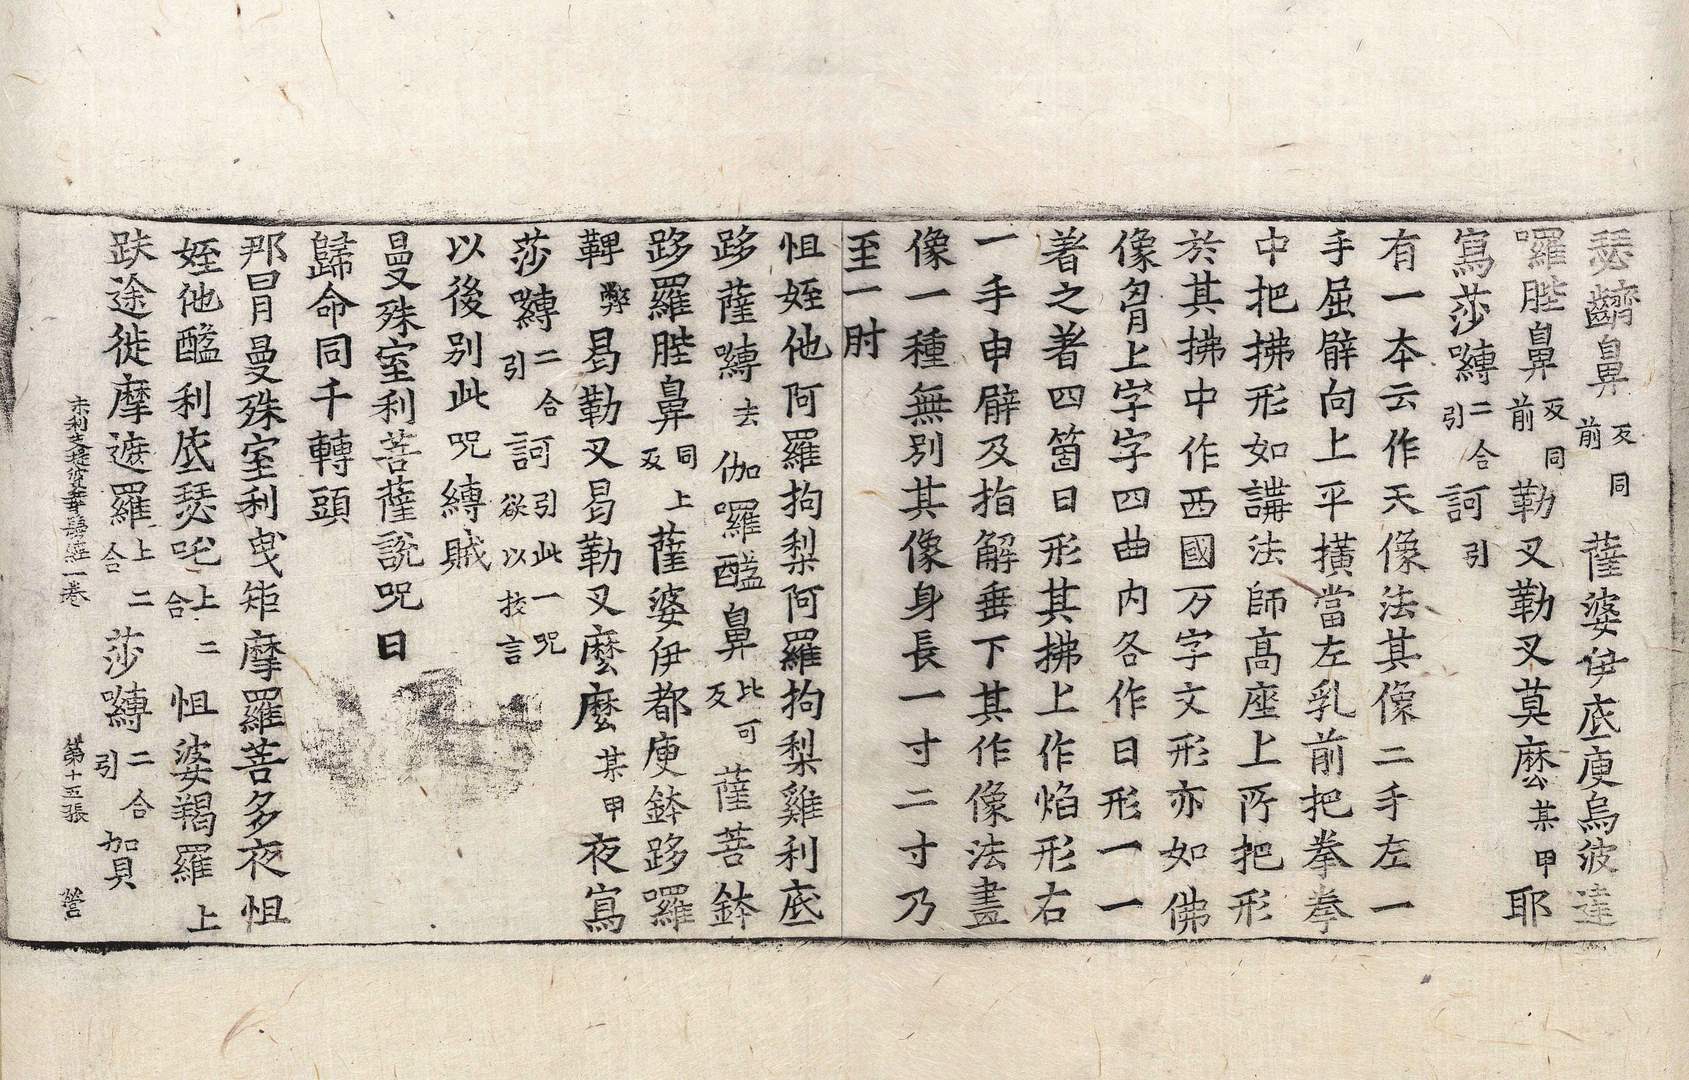 瑟齵鼻反同前薩婆伊底庾烏波達
囉胜鼻反同前勒叉勒叉莫麼某甲耶
寫莎嚩二合引訶引
有一本云作天像法其像二手左一
手屈臂向上平撗當左乳前把拳拳
中把拂形如講法師高座上所把形
於其拂中作西國万字文形亦如佛
像胷上字字四曲内各作日形一一
著之著四箇日形其拂上作焰形右
一手申臂及指解垂下其作像法盡
像一種無別其像身長一寸二寸乃
至一肘
怛姪他阿羅拘梨阿羅拘梨雞利底
跢薩嚩去伽囉醯鼻比可反薩菩鉢
跢羅胜鼻同上反薩婆伊都庾鉢跢囉
鞞弊曷勒叉曷勒叉麼麼某甲夜寫
莎嚩二合引訶引此一咒欲以技言
以後別此咒縛賊
曼殊室利菩薩說咒曰
歸命同千轉頭
那曷曼殊室利曵矩摩羅菩多夜怛
姪他醯利底瑟吒上二合怛婆羯羅上
趺途徙摩遮羅上二合莎嚩二合引加貝
末利支提婆華鬘經一卷 第十五張 營